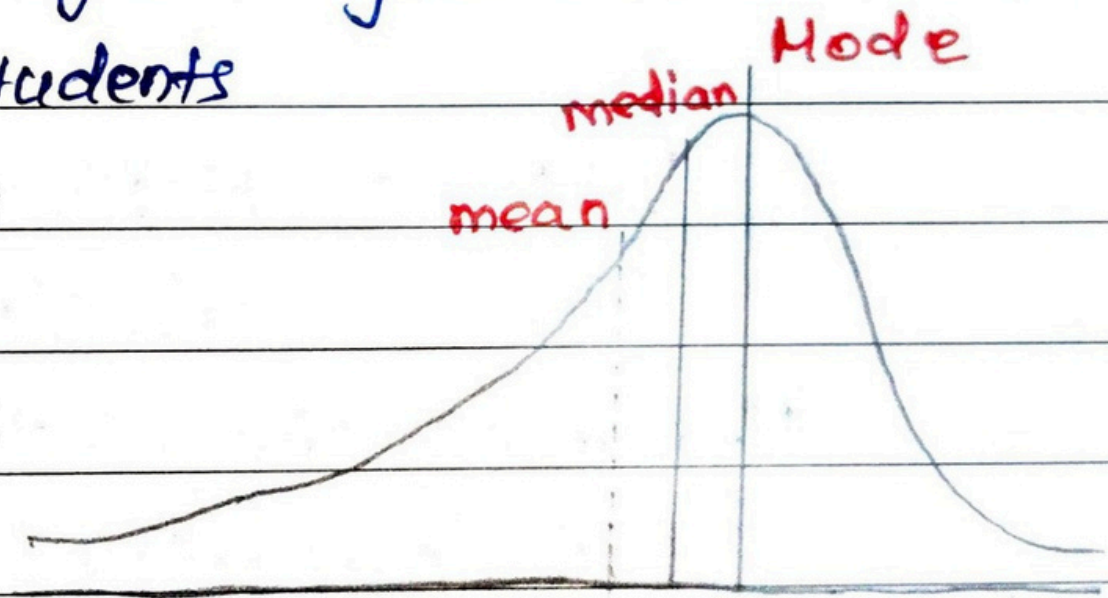 tudents
Mode
median
mean